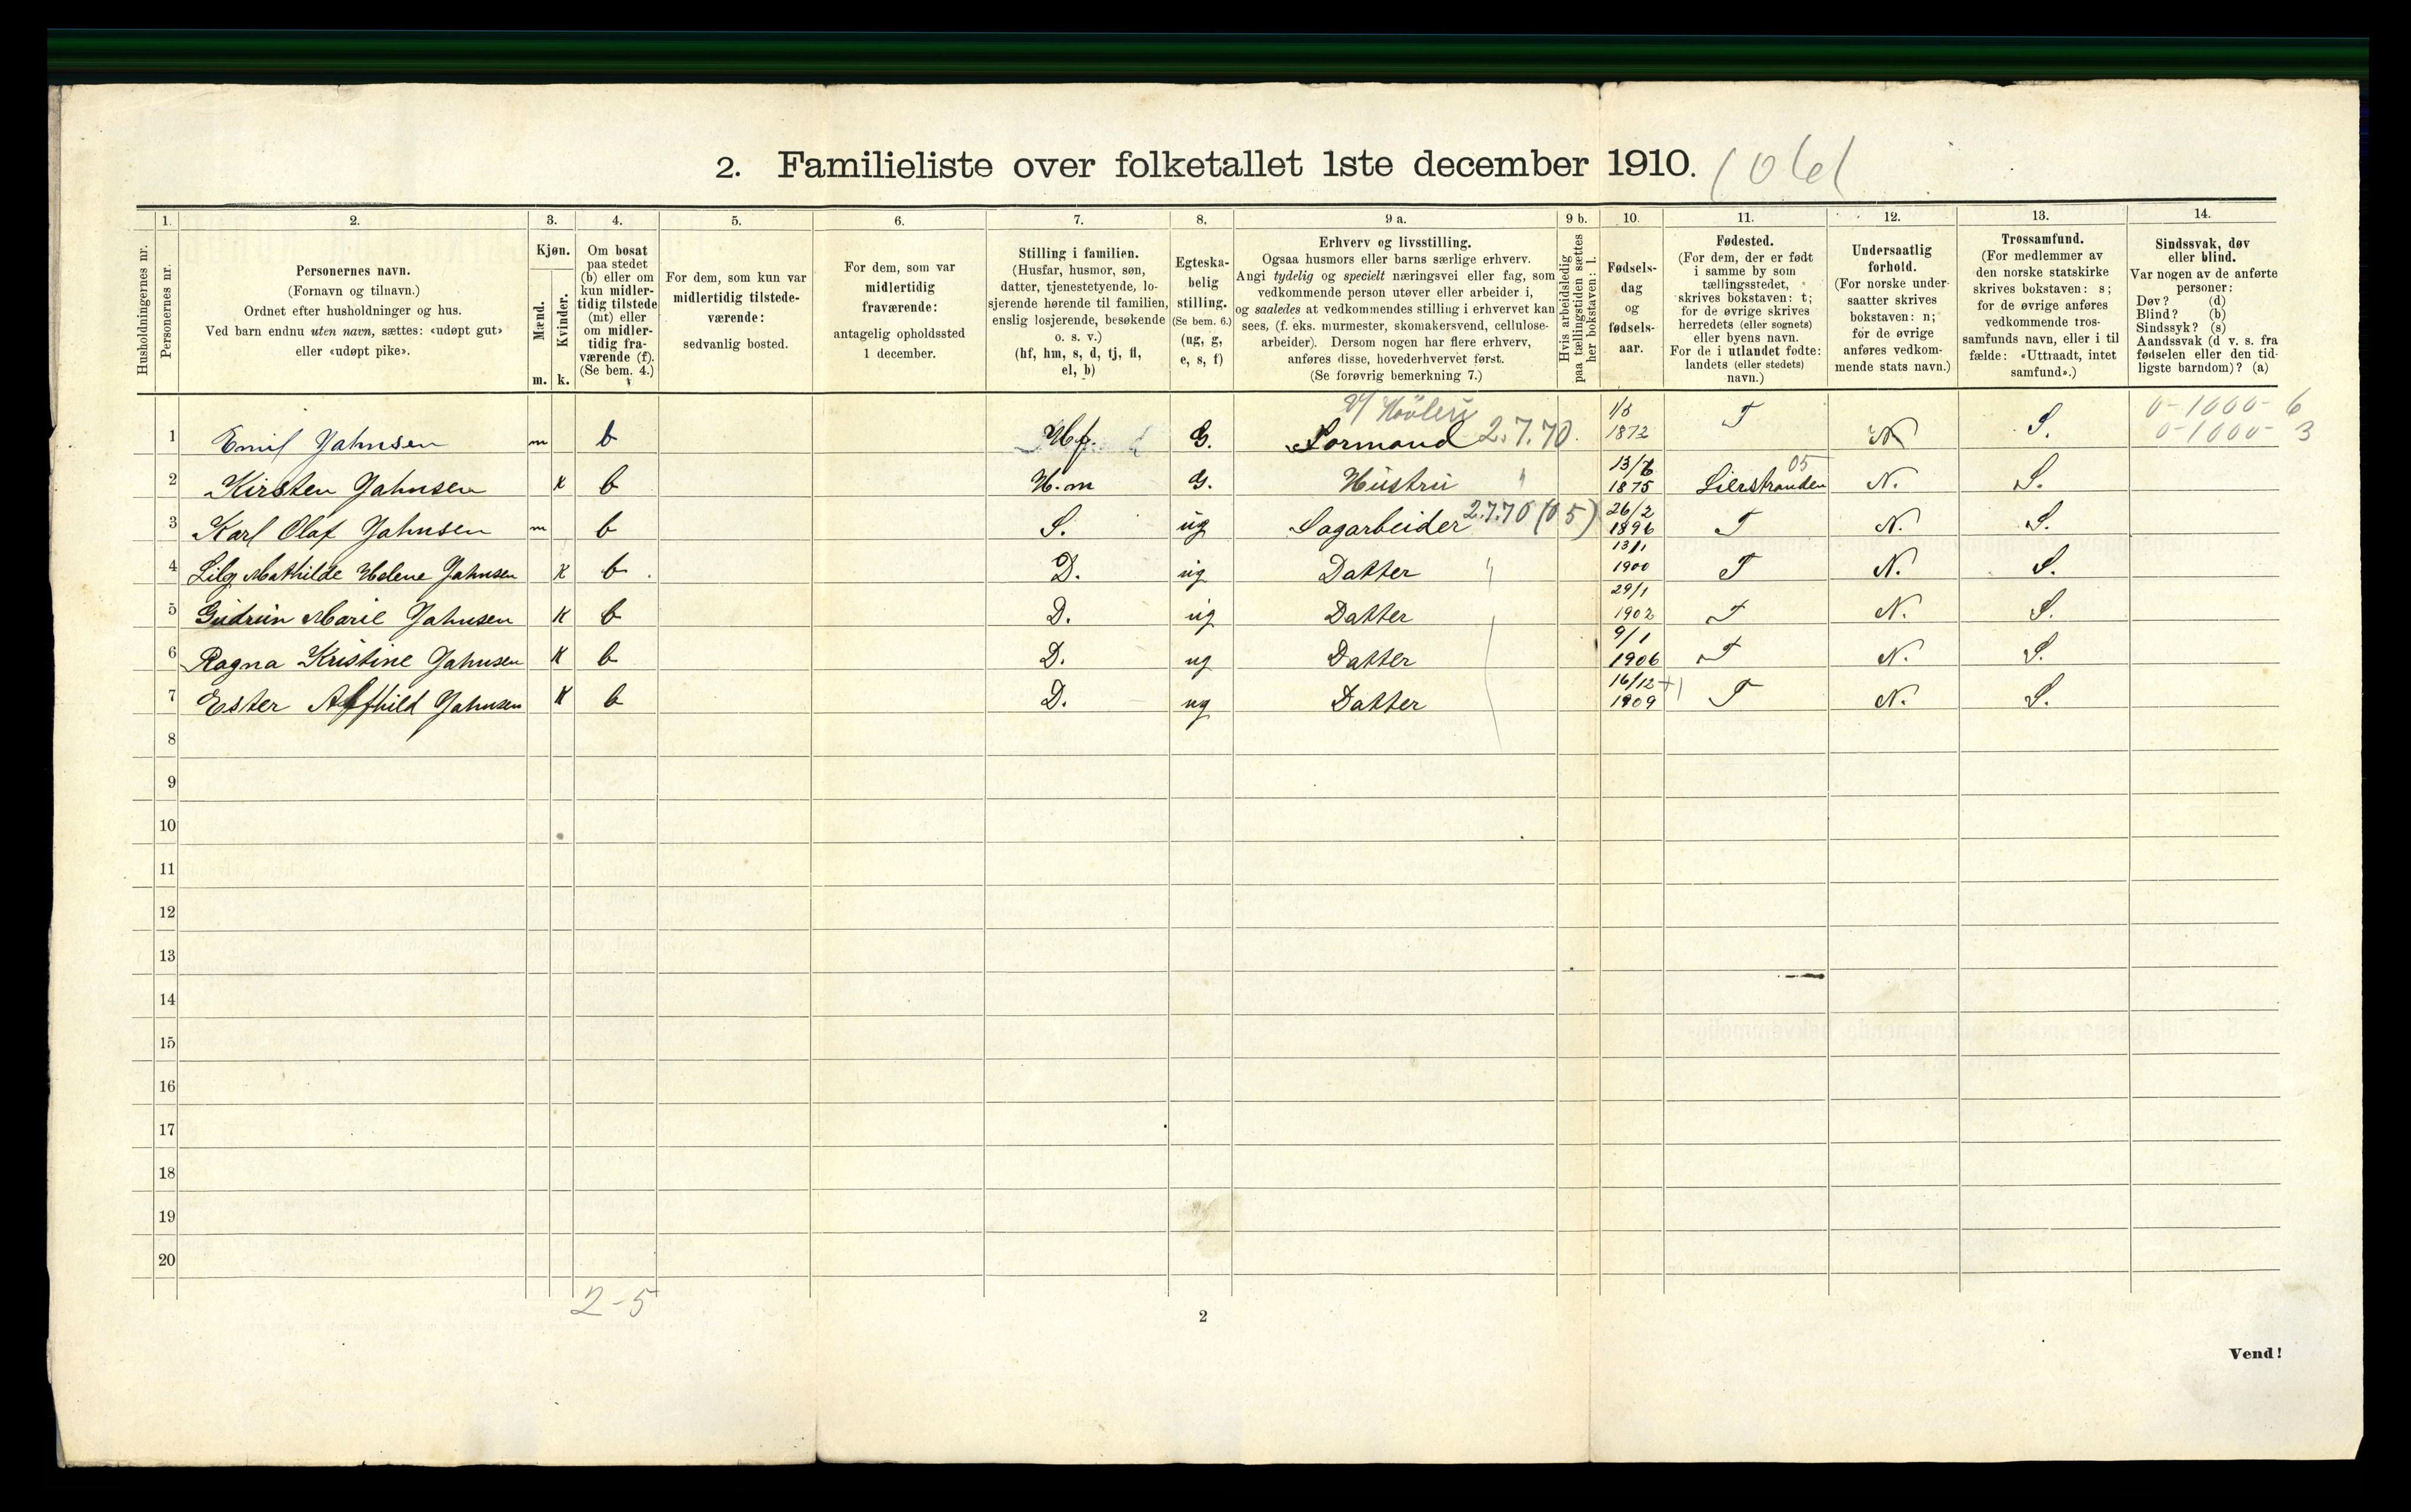 2. Familieliste over folketallet 1ste december 1910.
1. 2. 3. 4. 5. 6. 7. 8. 9 a. 9 b. 10. 11. 12. 13. 14.
Husholdningernes nr.
Personernes nr.
Personernes navn.
(Fornavn og tilnavn.)
Ordnet efter husholdninger og hus.
Ved barn endnu uten navn, sættes: «udøpt gut»
eller «udøpt pike».
Kjøn.
Mænd.
Kvinder.
m. k.
Om bosat
paa stedet
(b) eller om
kun midler-
tidig tilstede
(mt) eller
om midler-
tidig fra-
værende (f).
(Se bem. 4.)
For dem, som kun var
midlertidig tilstede-
værende:
sedvanlig bosted.
For dem, som var
midlertidig
fraværende:
antagelig opholdssted
1 december.
Stilling i familien.
(Husfar, husmor, søn,
datter, tjenestetyende, lo-
sjerende hørende til familien,
enslig losjerende, besøkende
o. s. v.)
(hf, hm, s, d, tj, fl,
el, b)
Egteska-
belig
stilling.
(Se bem. 6.)
(ug, g,
e, s, f)
Erhverv og livsstilling.
Ogsaa husmors eller barns særlige erhverv.
Angi tydelig og specielt næringsvei eller fag, som
vedkommende person utøver eller arbeider i,
og saaledes at vedkommendes stilling i erhvervet kan
sees, (f. eks. murmester, skomakersvend, cellulose-
arbeider). Dersom nogen har flere erhverv,
anføres disse, hovederhvervet først.
(Se forøvrig bemerkning 7.)
Hvis arbeidsledig
paa tællingstiden sættes
her bokstaven: l.
Fødsels-
dag
og
fødsels-
aar.
Fødested.
(For dem, der er født
i samme by som
tællingsstedet,
skrives bokstaven: t;
for de øvrige skrives
herredets (eller sognets)
eller byens navn.
For de i utlandet fødte:
landets (eller stedets)
navn.)
Undersaatlig
forhold.
(For norske under-
saatter skrives
bokstaven: n;
for de øvrige
anføres vedkom-
mende stats navn.)
Trossamfund.
(For medlemmer av
den norske statskirke
skrives bokstaven: s;
for de øvrige anføres
vedkommende tros-
samfunds navn, eller i til
fælde: «Uttraadt, intet
samfund».)
Sindssvak, døv
eller blind.
Var nogen av de anførte
personer:
Døv? (d)
Blind? (b)
Sindssyk? (s)
Aandssvak (d v. s. fra
fødselen eller den tid-
ligste barndom)? (a)
1 Emil Jahnsen m b Hf. G. Formand 2.7.70. 1872 T N S. 0-1000-6
0-1000-3
2 Kirsten Jahnsen k b H.m G. Hustru 1875 Lierstranden 05 N. S.
3 Karl Olaf Jahnsen m b S. ug Sagarbeider 2.7.70 (05) 26/2 1896 T N. S.
4 Lily Mathilde Helene Jahnsen k b D. ug Datter 13/1 1900 T N. S.
5 Gudrun Marie Jahnsen k b D. ug Datter 29/1 1902 T N. S.
6 Ragna Kristine Jahnsen k b D. ug Datter 9/1 1906 T N. S.
7 Ester Alfhild Jahnsen k b D. ug Datter 16/12 1909 T N. S.
8
9
10
11
12
13
14
15
16
17
18
19
20
2-5
2
Vend!